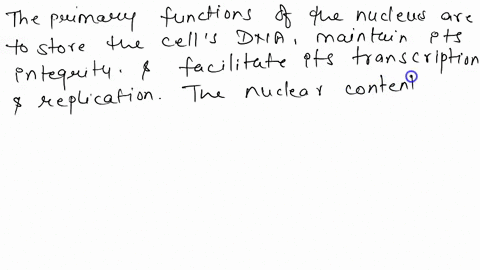 The primary functions of the nucleus are
to store the cell's DNA, maintain its
integrity, & facilitate its transcription
& replication. The nuclear content